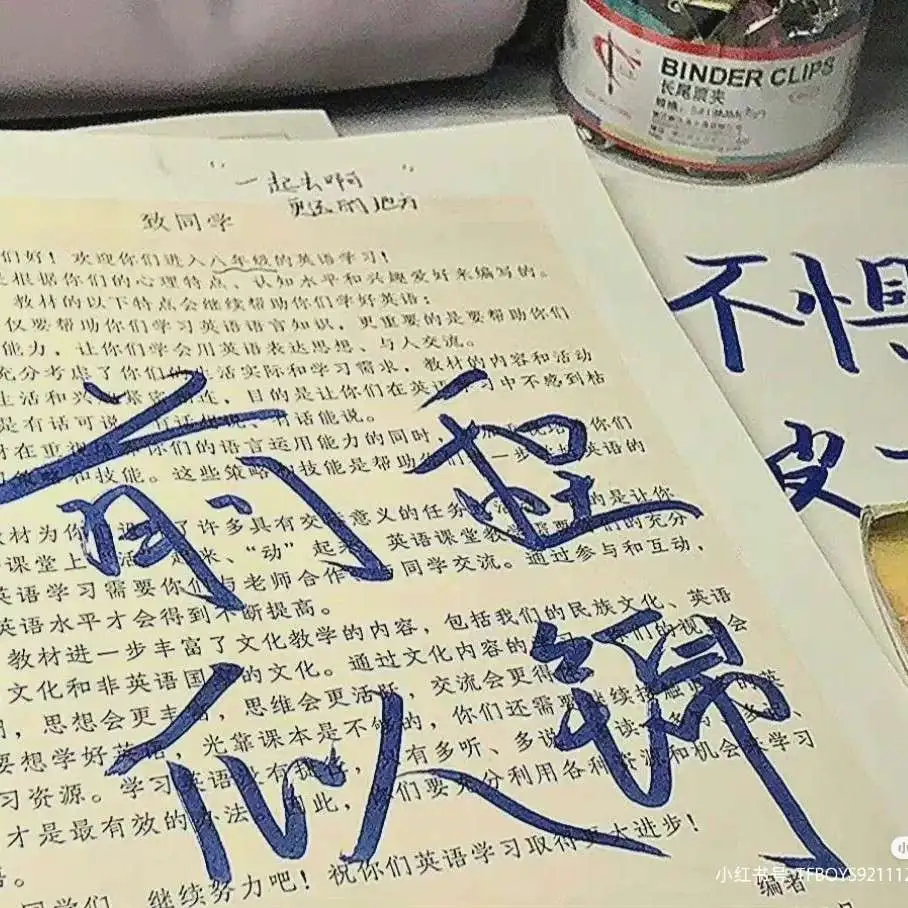 BINDER CLIPS
长尾票夹
"一起去啊
更远的地方"
致同学
们好！欢迎你们进入八年级的英语学习！
是根据你们的心理特点、认知水平和兴趣爱好来编写的。
教材的以下特点会继续帮助你们学好英语：
仅要帮助你们学习英语语言知识，更重要的是要帮助你们
能力，让你们学会用英语表达思想、与人交流。
充分考虑了你们的生活实际和学习需求，教材的内容和活动
生活和兴 紧密 连，目的是让你们在英语学习中不感到枯
是有话可说、有话想说、有话能说。
材在重视 你们的语言运用能力的同时， 你们
和技能。这些策略和技能是帮助你们进一步 英语的
教材为你 了许多具有交际意义的任务 活 的是让你
课堂上“活”起来、“动”起来。英语课堂教学需要你们的充分
英语学习需要你们与老师合作 同学交流。通过参与和互动，
英语水平才会得到不断提高。
教材进一步丰富了文化教学的内容，包括我们的民族文化、英语
文化和非英语国 的文化。通过文化内容的 你们的视 会
，思想会更丰富，思维会更活跃，交流会更得
要想学好英语，光靠课本是不够的，你们还需要继续接触更 的英
习资源。学习英语没有捷径，只有多听、多说、 读、
才是最有效的办法。因此，你们要充分利用各种资源和机会来学习
语。
同学们，继续努力吧！祝你们英语学习取得更大进步！
编者
前程
似锦
不惧
小红书号:TFBOYS921112